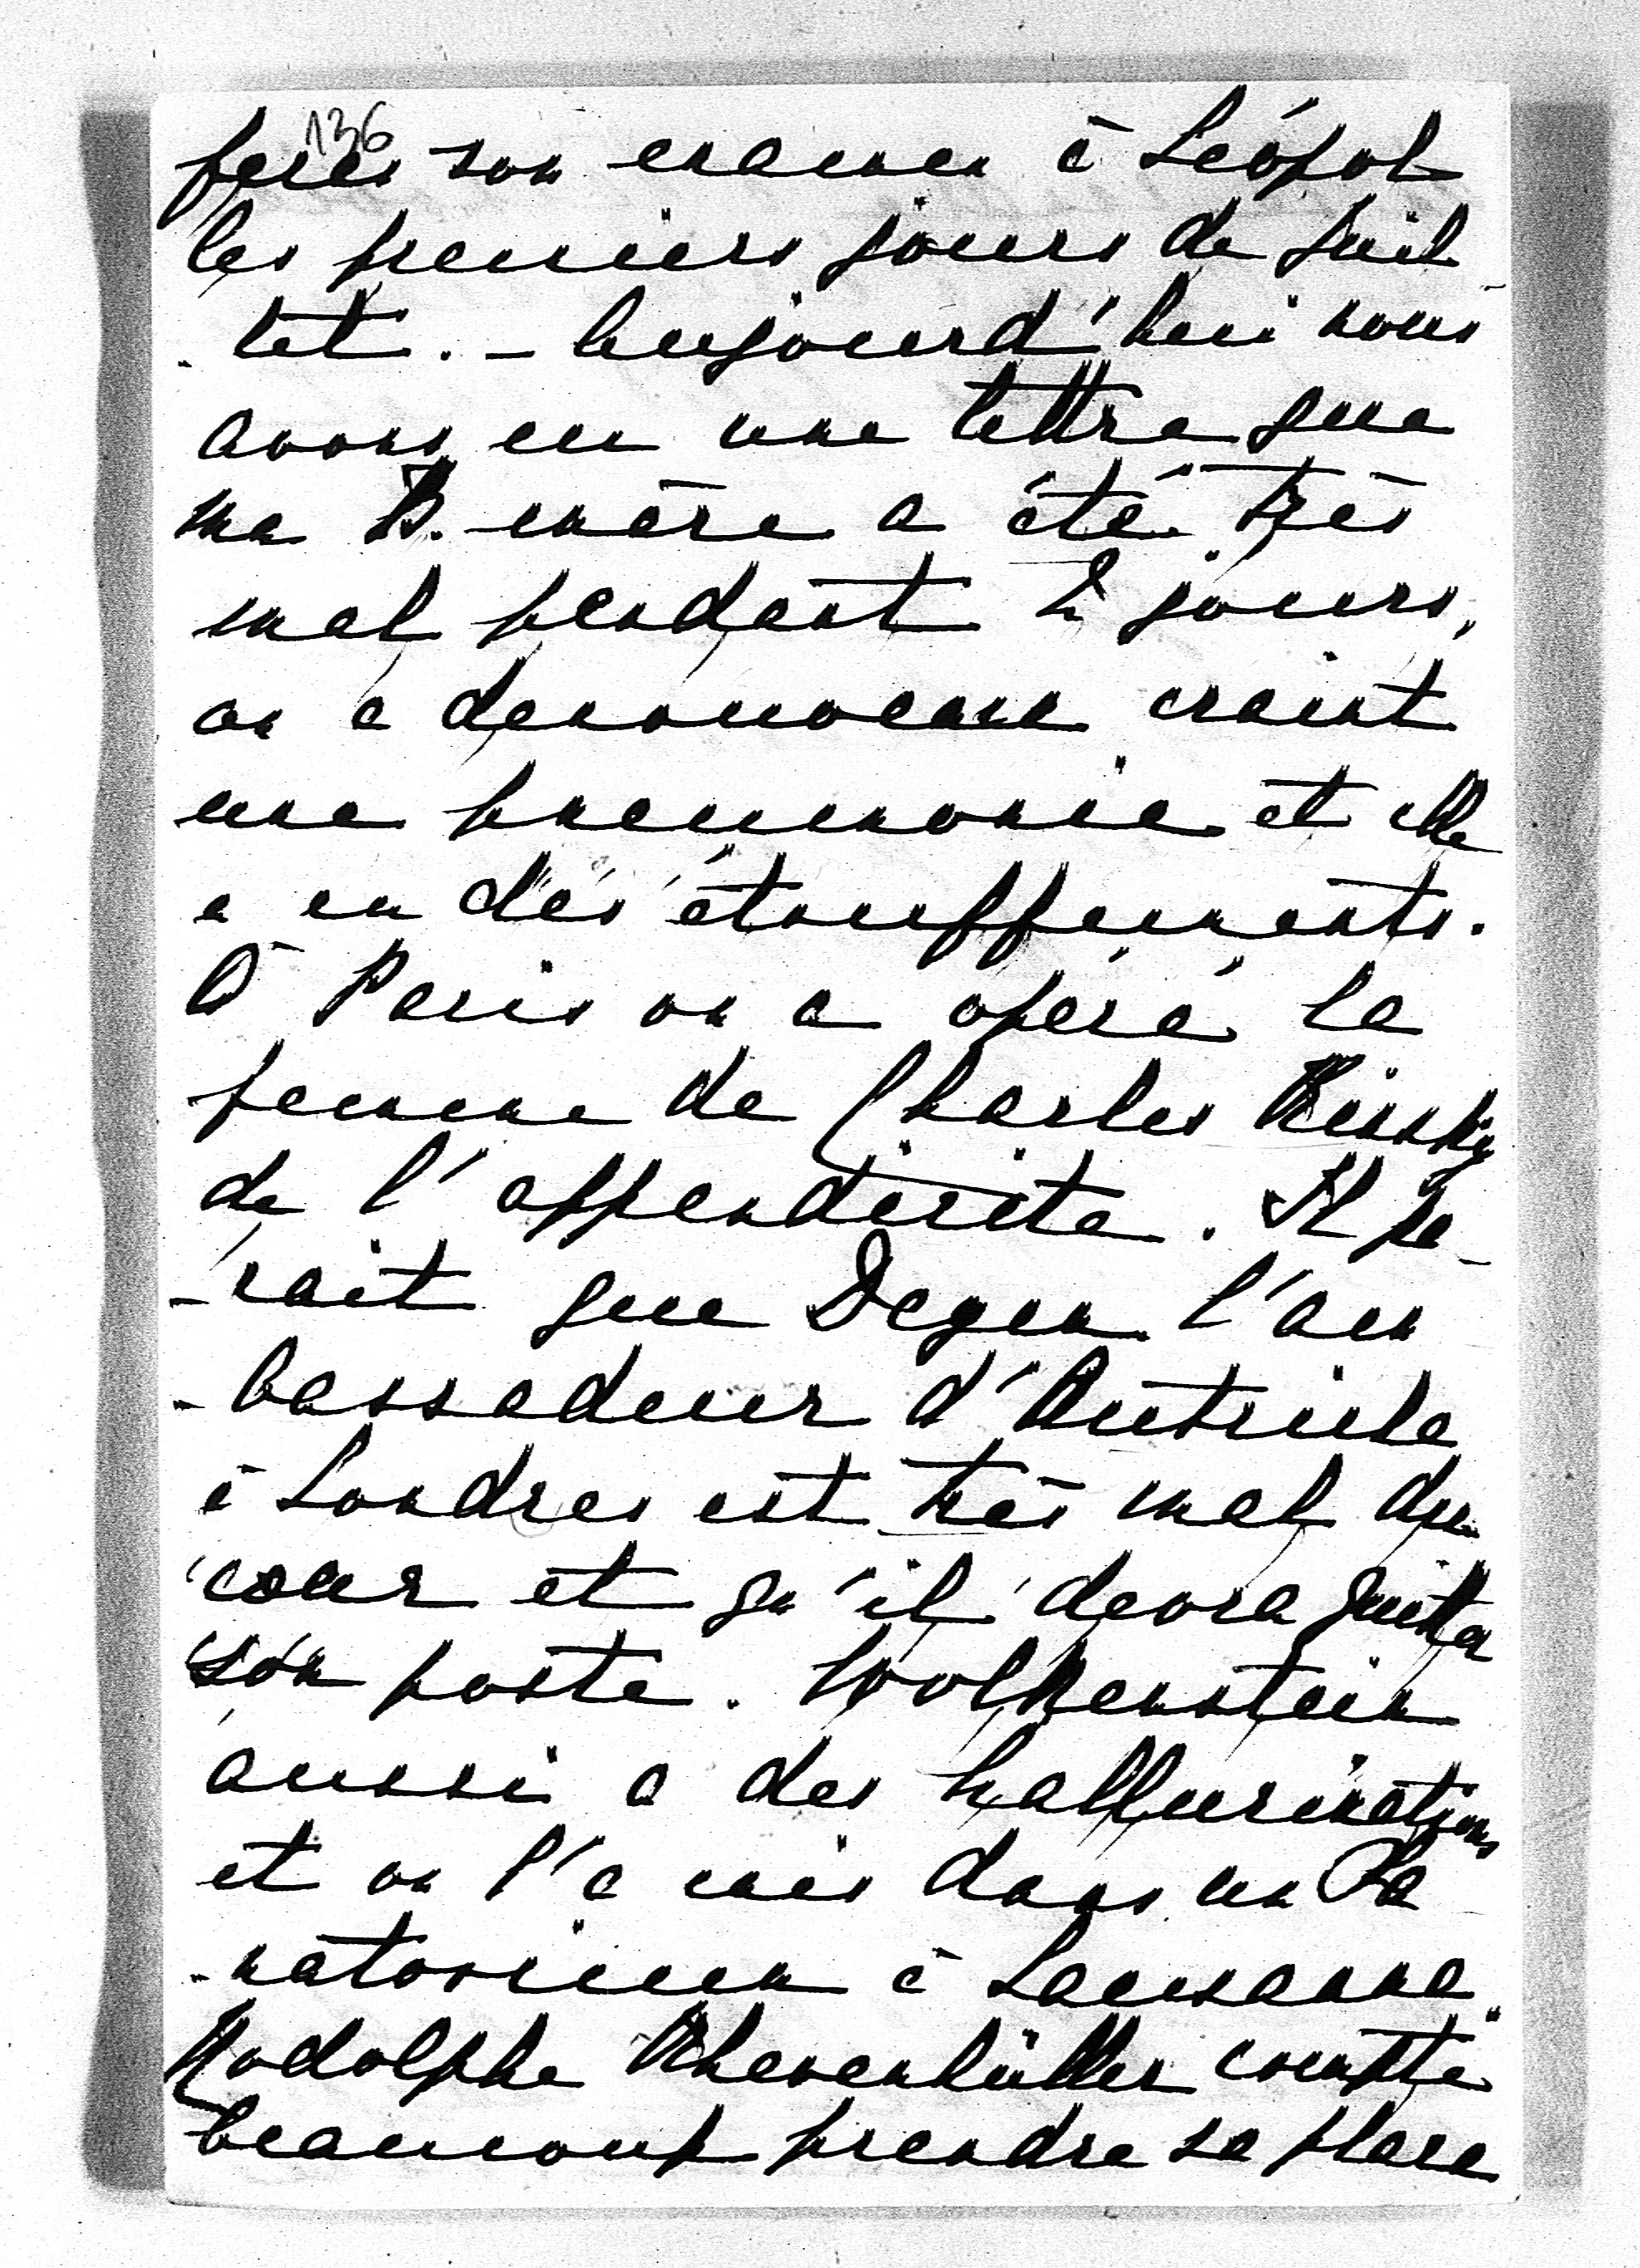 136
feras son examen à Léópol
les premiers jours de Juil
- let. - Aujourd'hui nous
avons eu une lettre que
ma B. mère a été très
mal pendant 2 jours,
on a denouveau craint
une pneumonie et elle
a eu des étouffements.
À Paris on a opéré la
femme de Charles Kinsky
de l'appendicite. Il pa
- rait que Degen l'am
- bassadeur d'Autriche
à Londres est très mal du
coeur et qu'il devra quitter
son poste. Wolkenstein
aussi a des hallucinations
et on l'a mis dans un Sa
- natorium à Lausanne.
Rodolphe Khevenhüller compte
beaucoup prendre sa place